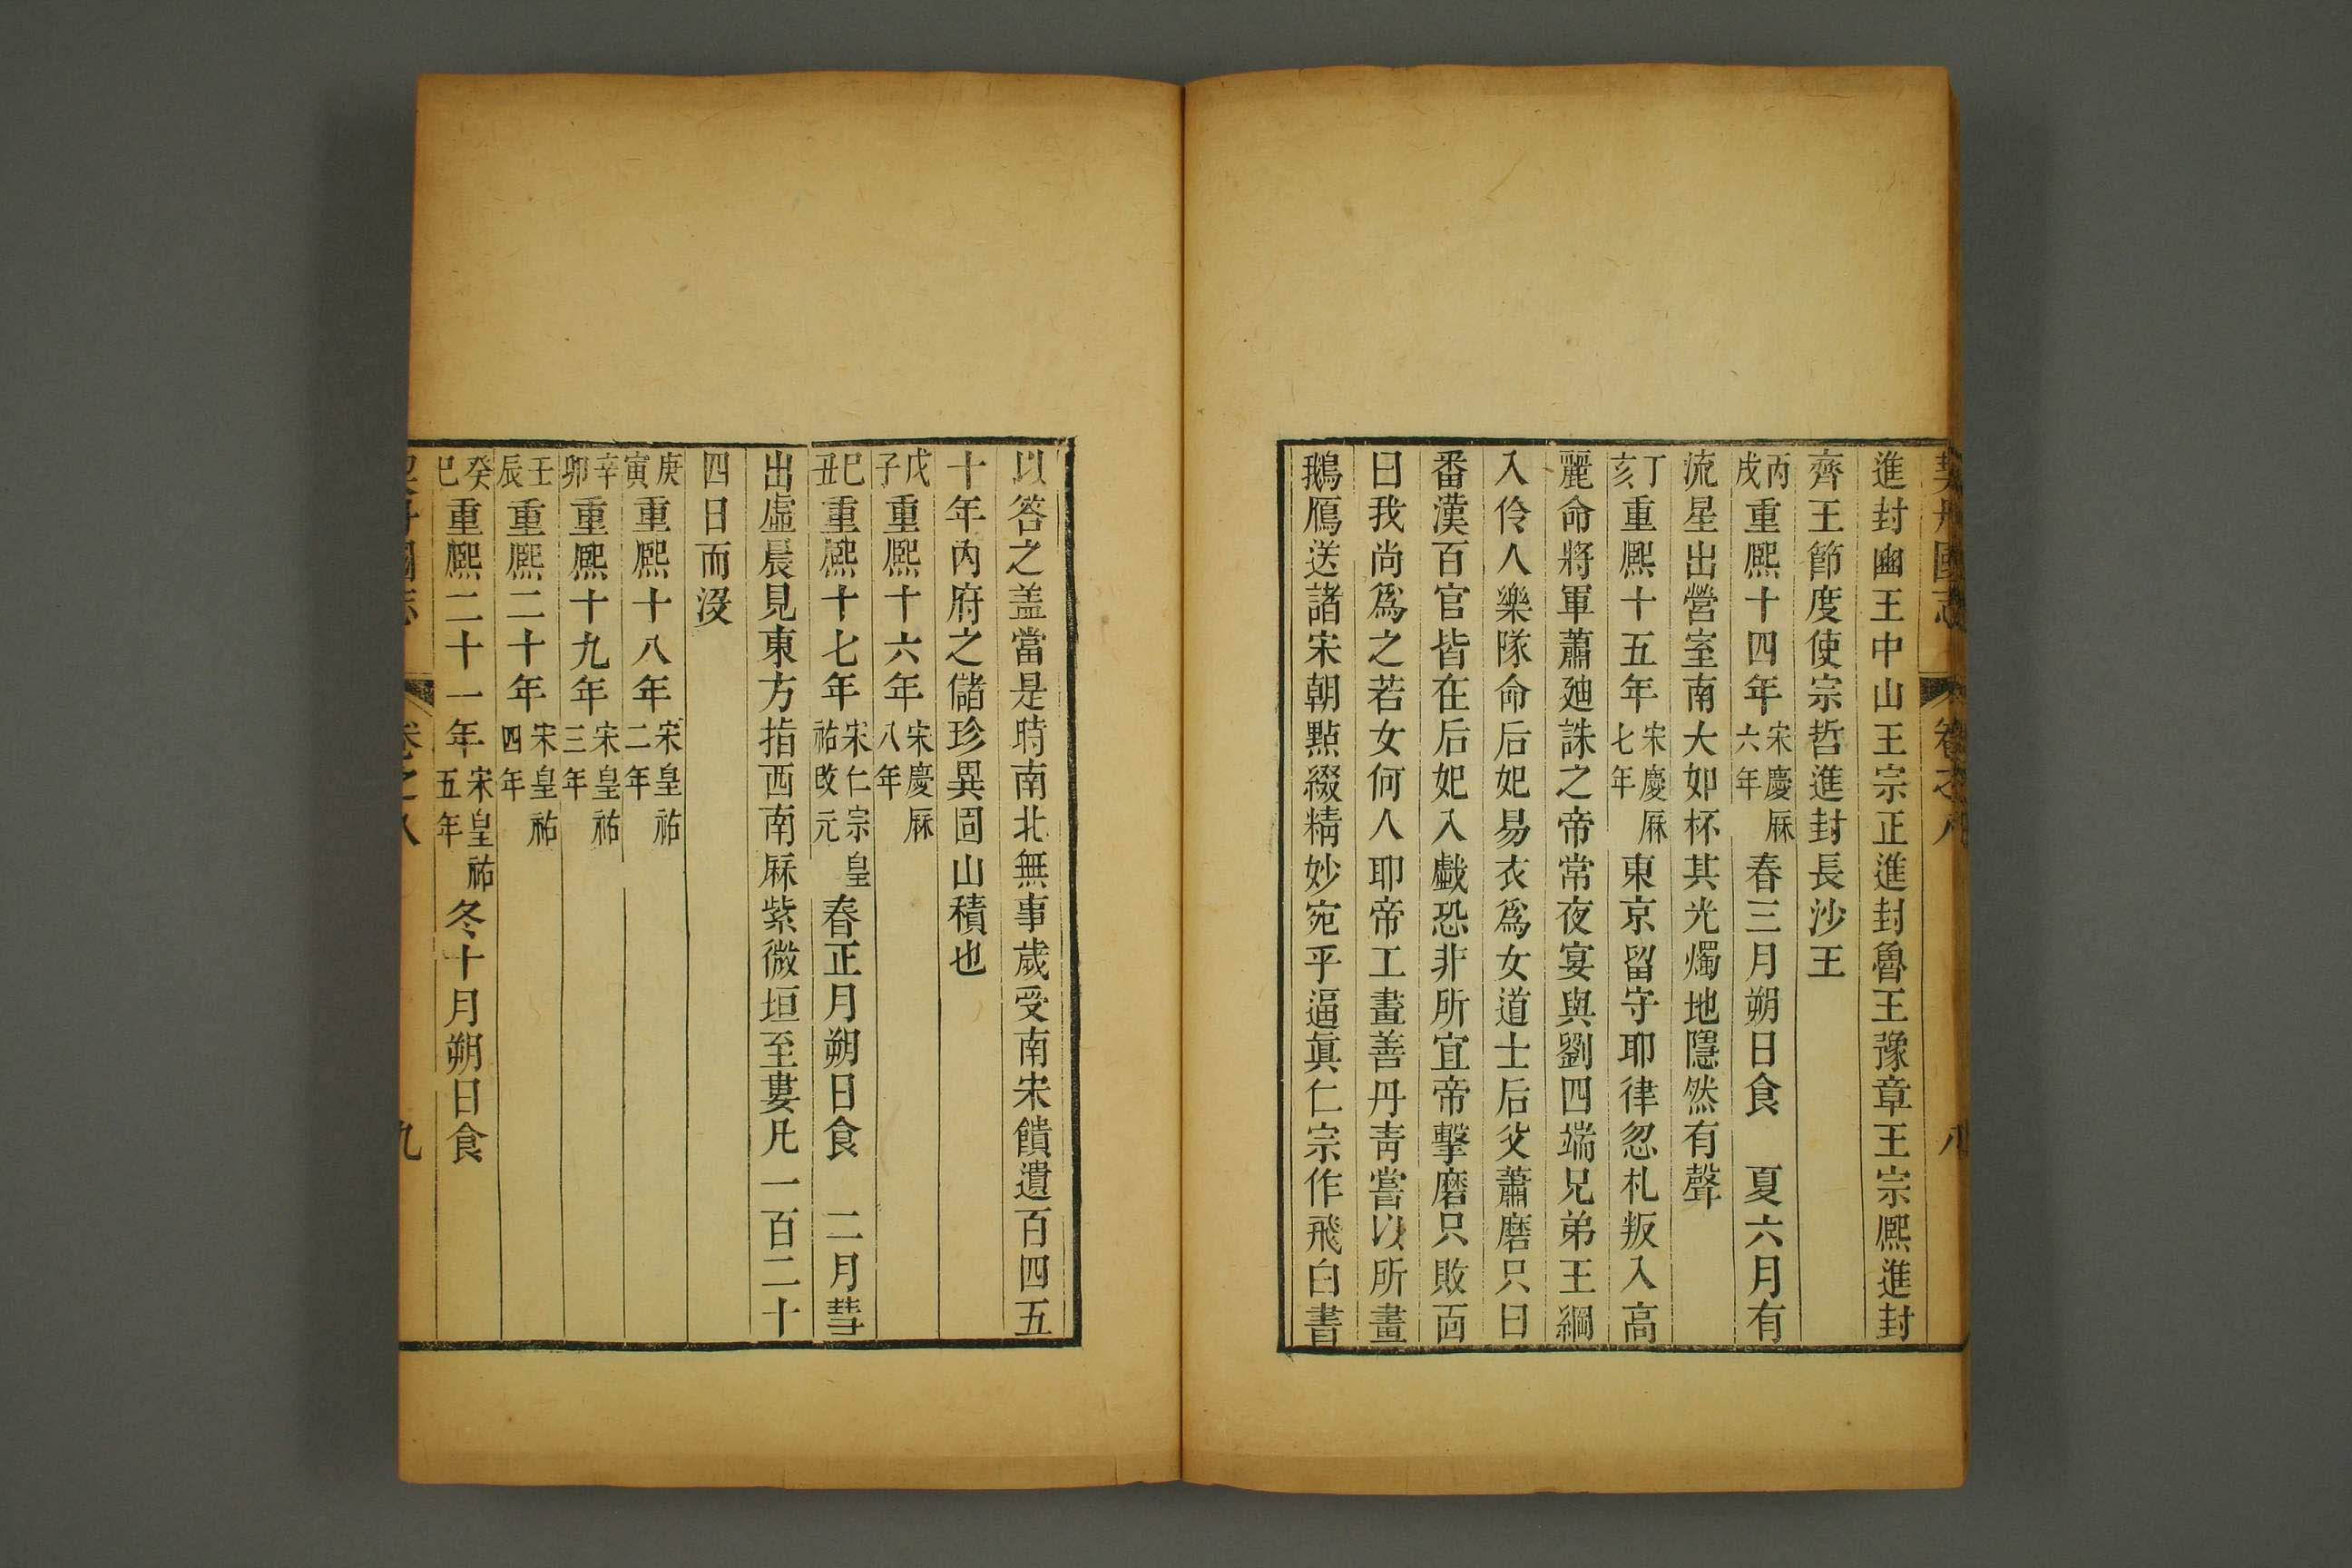 契丹國志 卷之八 八
進封幽王中山王宗正進封魯王豫章王宗熈進封
齊王節度使宗哲進封長沙王
丙戌重熈十四年宋慶厤六年春三月朔日食 夏六月有
流星出營室南大如杯其光燭地隱然有聲
丁亥重熈十五年宋慶厤七年東京留守耶律忽札叛入高
麗命將軍蕭廸誅之帝常夜宴與劉四端兄弟王綱
入伶人樂隊命后妃易衣爲女道士后父蕭磨只曰
番漢百官皆在后妃入戱恐非所宜帝擊磨只敗面
曰我尚爲之若女何人耶帝工畫善丹靑嘗以所畫
鵝鴈送諸宋朝點綴精妙宛乎逼眞仁宗作飛白書
以答之盖當是時南北無事歲受南宋饋遺百四五
十年內府之儲珍異固山積也
戊子重熈十六年宋慶厤八年
巳丑重熈十七年宋仁宗皇祐改元春正月朔日食 二月彗
出虛晨見東方指西南厤紫微垣至婁凡一百二十
四日而沒
庚寅重熈十八年宋皇祐二年
辛卯重熈十九年宋皇祐三年
壬辰重熈二十年宋皇祐四年
癸巳重熈二十一年宋皇祐五年冬十月朔日食
契丹國志 卷之八 九